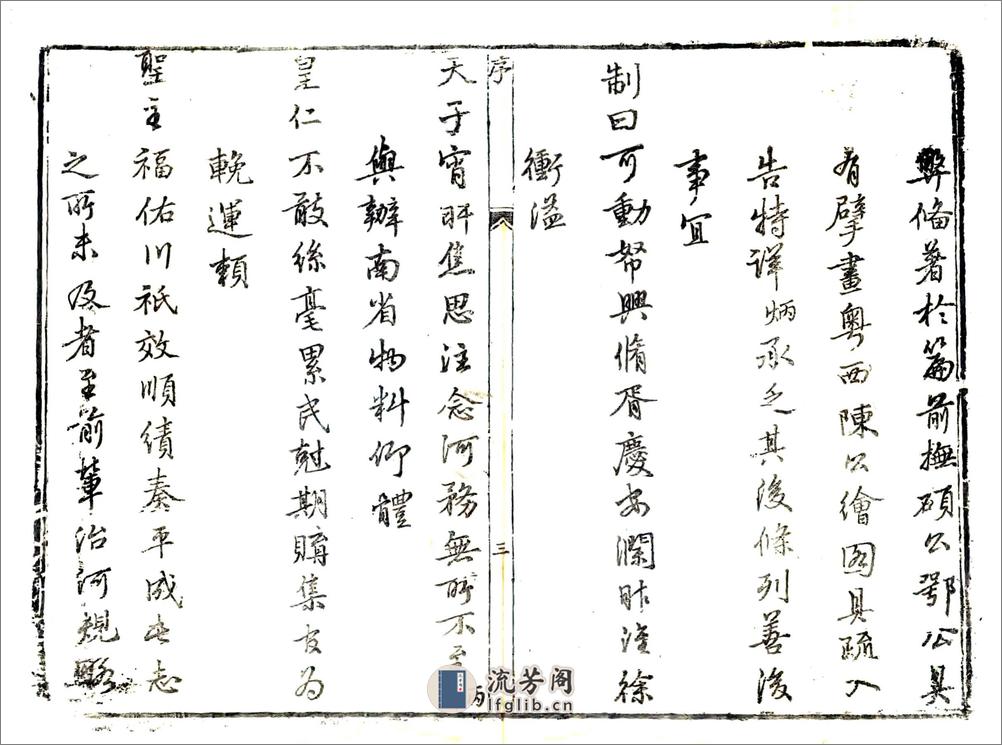 弊備著於篇前撫碩公鄂公具
有擘畫粵西陳公繪圖具疏入
告特詳炳承乏其後條列善後
事宜
制曰可動帑興脩胥慶安瀾
徐
衝溢
序
三
天子宵旰焦思注念河務無所不至
與辦南省物料仰體
皇仁不敢絲毫累民尅期購集
為
輓運賴
聖主福佑川祇效順績奏平成
志
之所未及者至前輩治河規畧
流芳阁
lfglib.cn